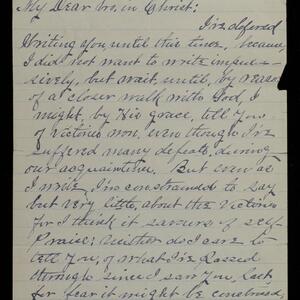 My Dear bro, in Christ:
I've defered
Writing you until this time, because
I did not want to write impul-
sively, but wait, until, by reason
of a closer walk with God, I
might, by His grace, tell you
of victories won, even though I've
suffered many defeats, during
our acquaintance. But even as
I write, I'm constrained to say
but very little, about the victories
for I think it savours of self-
Praise; neither do I care to
tell you, of what I've passed
through since I saw you, lest
for fear it might be construed,